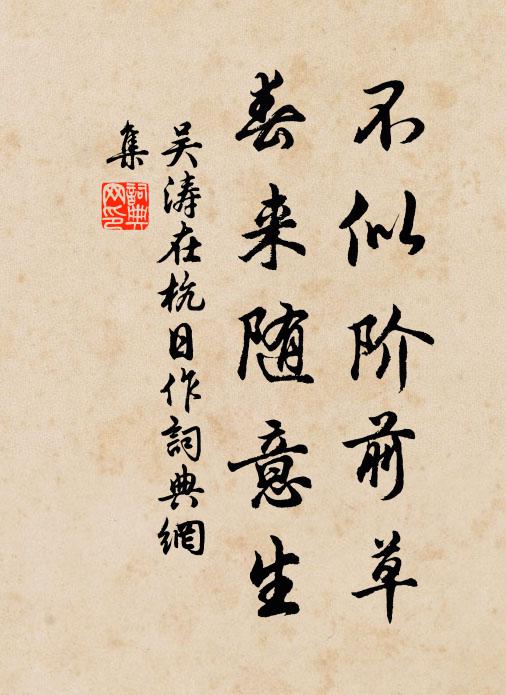 不似阶前草
春来随意生
吴涛在杭日作詞典網
集
詞典
网印